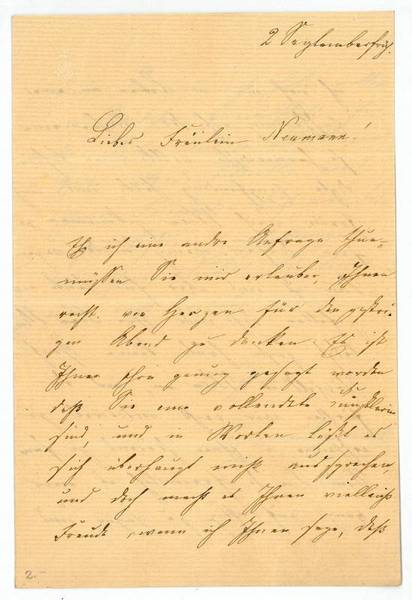 2 Septemberfrüh.
Liebes Fräulein Neumann!
Eh ich eine andre Anfrage thue,
müssen Sie mir erlauben, Ihnen
recht von Herzen für den gestri-
gen Abend zu danken. Es ist
Ihnen schon genug gesagt worden
daß Sie eine vollendete Künstlerin
sind, und in Worten läßt es
sich überhaupt nicht aussprechen
und doch macht es Ihnen vielleicht
Freude, wenn ich Ihnen sage, daß
2.-